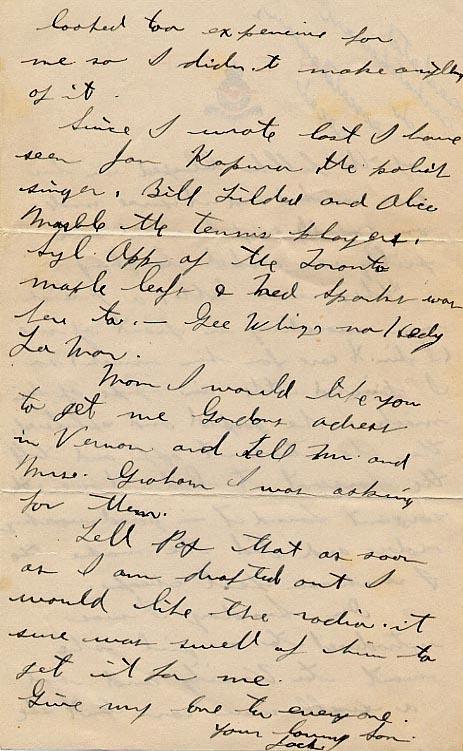 looked too expencive for
me so I didn't make anything
of it.
Since I wrote last I have
seen Jan Kapura the polish
singer, Bill Tilden and Alice
Marble the tennis players,
Syl. App of the Toronto
maple leafs & Ned Sparks was
here to. - Gee Whizz no Hedy
La Mar.
Mom I would like you
to get me Gordons adress
in Vernon and tell Mr. and
Mrse. Graham I was asking
for them.
Tell Pop that as soon
as I am drafted out I
would like the radio. it
sure was swell of him to
get it for me.
Give my love to everyone.
Your loving Son.
Jack